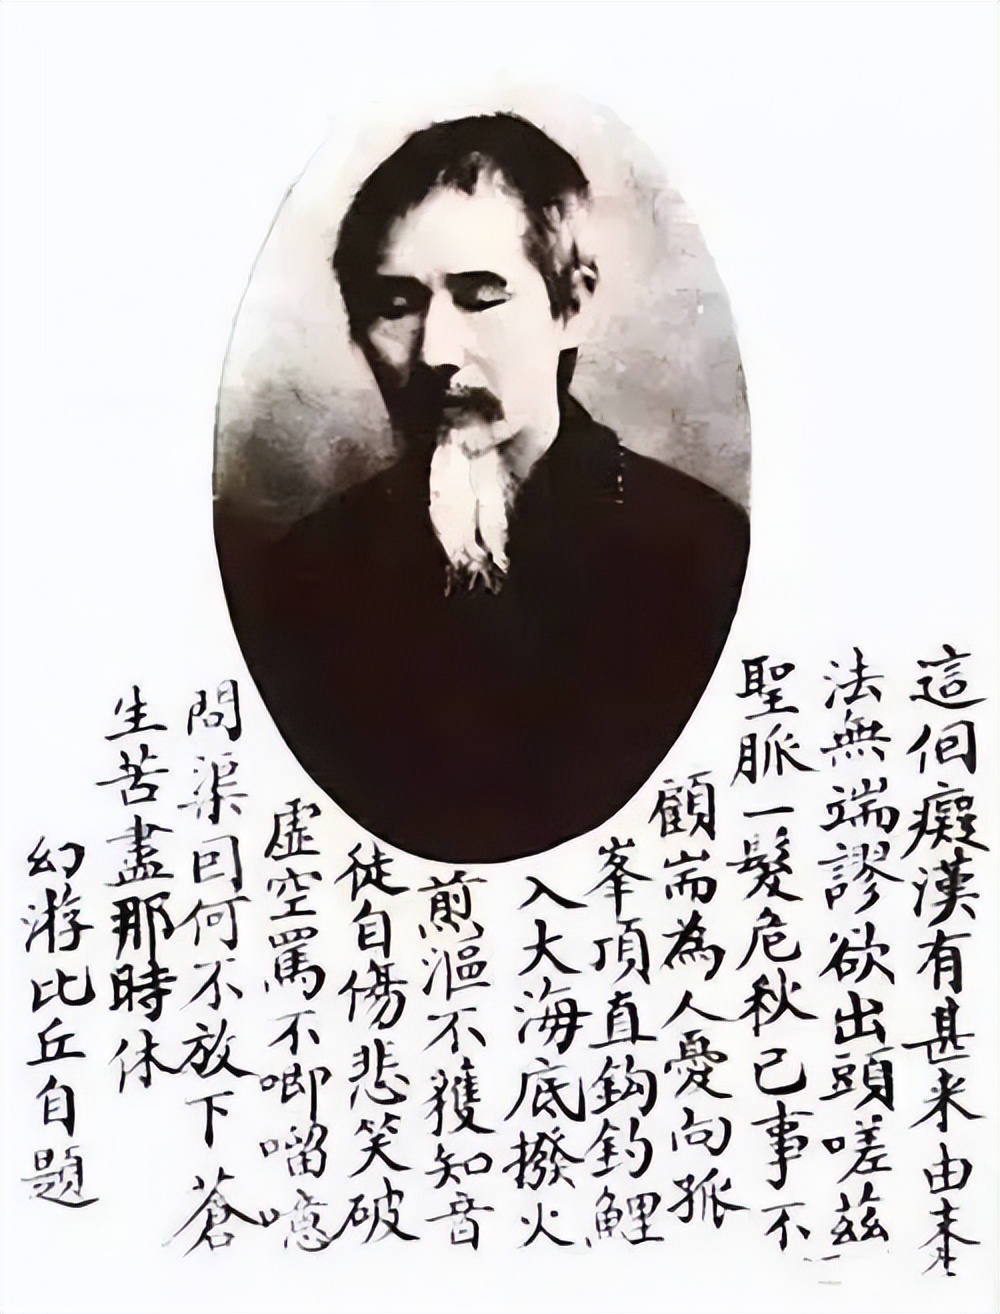 這個癡漢有甚来由末
法無端謬欲出頭嗟茲
聖脈一髮危秋己事不
顧耑為人憂向孤
峯頂直鈎釣鯉
入大海底撥火
煎漚不獲知音
徒自傷悲笑破
虛空罵不唧噫
問渠囙何不放下 蒼
生苦盡那時休
幻游比丘自題